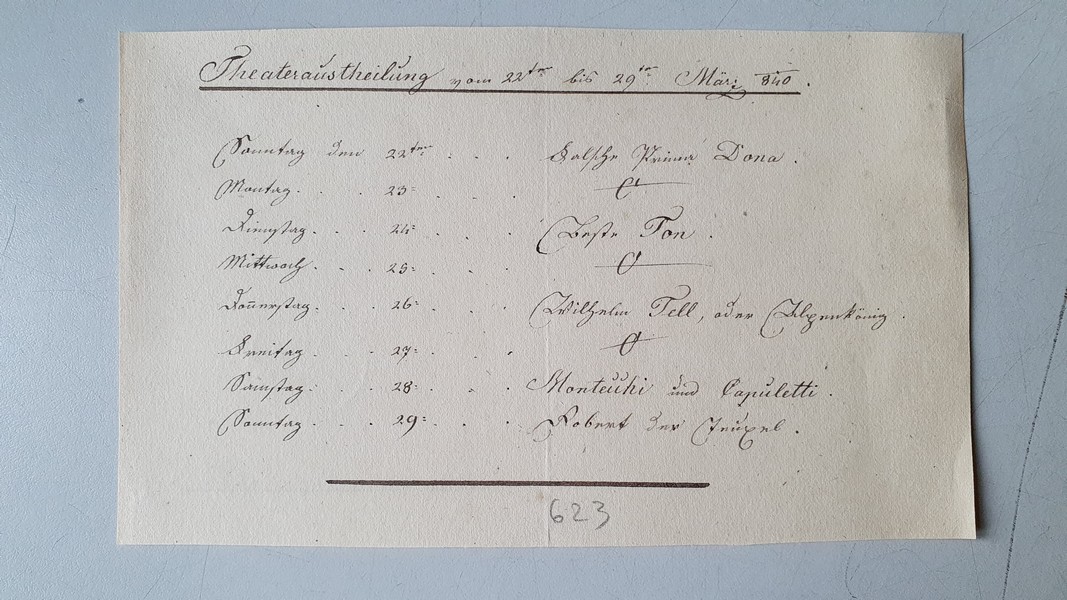 Theateraustheilung vom 22ten bis 29ten März 840.
Sonntag den 22ten . . . Falsche Prima Dona .
Montag . . . 23= . . .
Dienstag . . . 24= . . . Beste Ton .
Mittwoch . . . 25= . . .
Donnerstag . . . 26= . . . Wilhelm Tell, oder Alpenkönig .
Freitag . . . 27= . . .
Samstag . . . 28= . . . Montecchi und Capuletti .
Sonntag . . . 29= . . . Robert der Teufel .
623